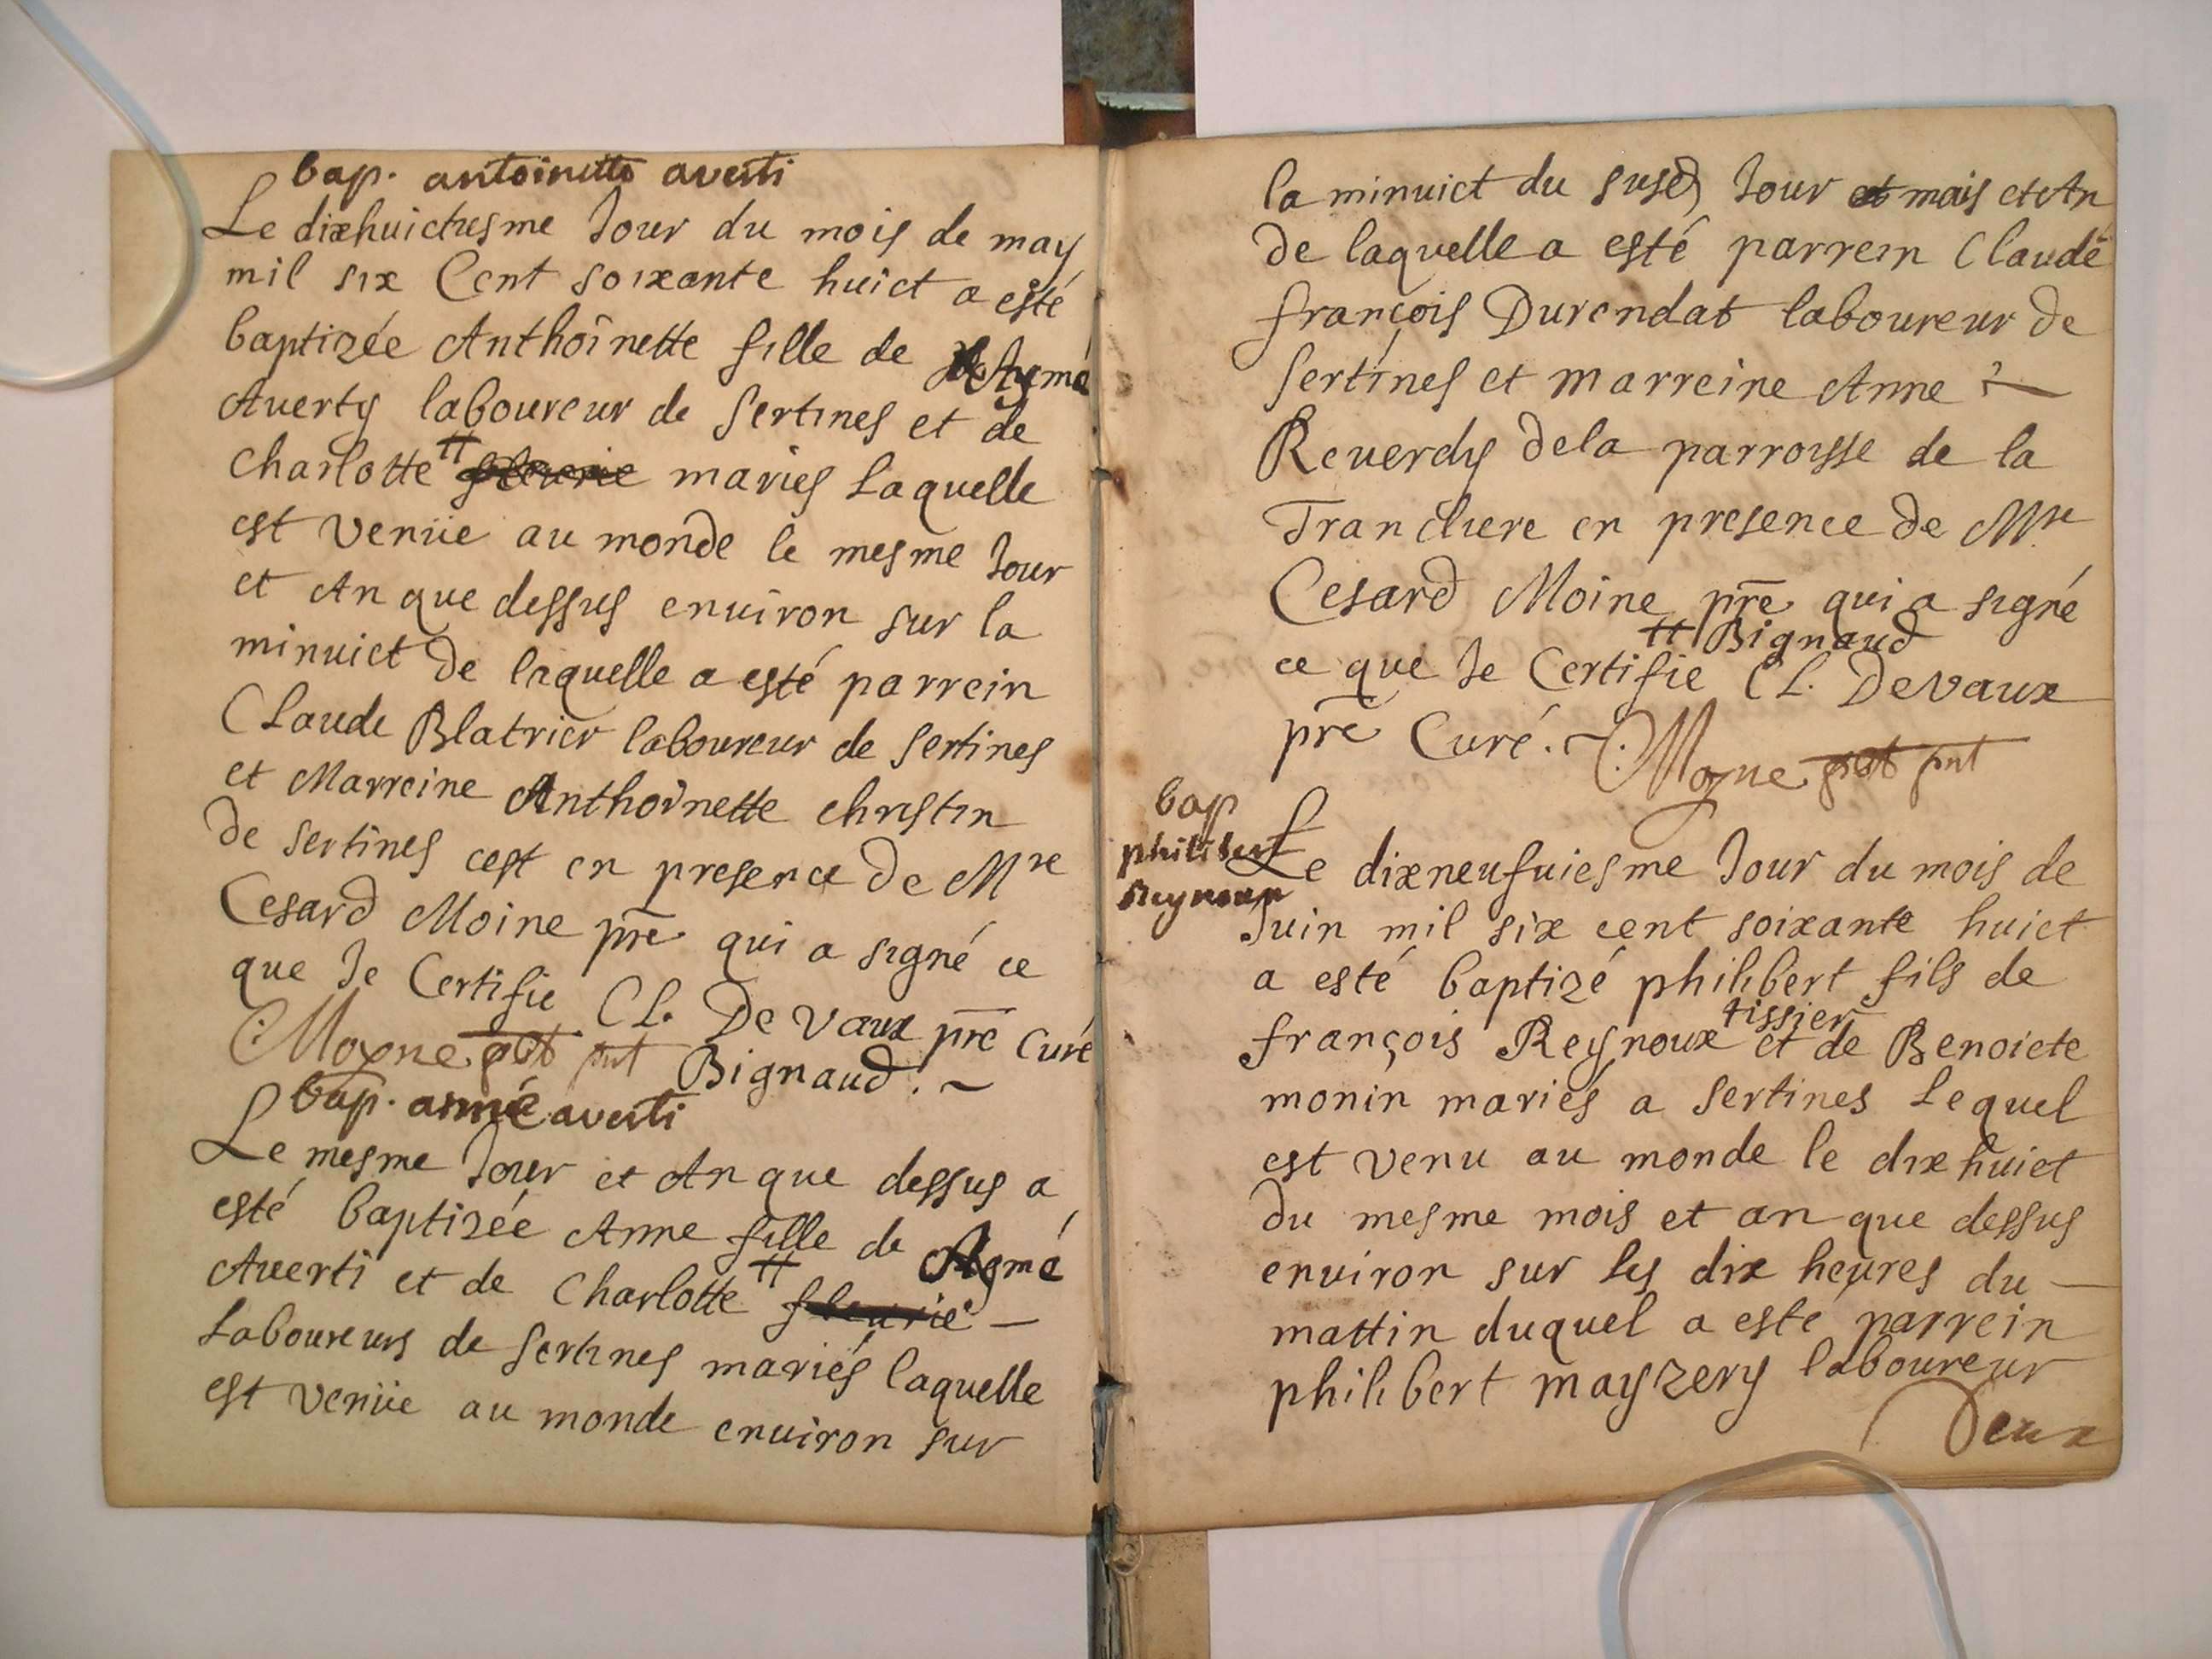 bap. antoinette averti
Le dixhuictiesme Jour du mois de may
mil six Cent soixante huict a esté
baptizée Anthoinette fille de Aymé
Averty laboureur de Sertines et de
Charlotte # fleurie mariés Laquelle
est venüe au monde le mesme Jour
et An que dessus environ sur la
minuict de laquelle a esté parrein
Claude Blatrier laboureur de Sertines
et Marreine Anthoinette Christin
de Sertines cest en presence de Mre
Cesard Moine pre qui a signé ce
que Je Certifie CL. De vaux pre Curé
Moyne pbt pnt Bignaud. ~
bap. anne averti
Le mesme Jour et An que dessus a
esté baptizée Anne fille de Aymé
Averti et de Charlotte # fleurie —
Laboureurs de Sertines mariés laquelle
est venüe au monde environ sur
la minuict du susd Jour et mois et An
de laquelle a esté parrein Claude
françois Durendat laboureur de
Sertines et marreine Anne
Reverdy de la parroisse de la
Tranchere en presence de Mre
Cesard Moine pre qui a signé
# Bignaud
ce que Je Certifie CL. De vaux
pre Curé. ~ Moyne pbt pnt
bap
philibert
reynoux
Le dixneufuiesme Jour du mois de
Juin mil six cent soixante huict
a esté baptizé philibert fils de
françois Reynoux tissier et de Benoicte
monin mariés a Sertines Lequel
est venu au monde le dixhuict
du mesme mois et an que dessus
environ sur les dix heures du —
mattin duquel a esté parrein
philibert mayzery laboureur
Deux